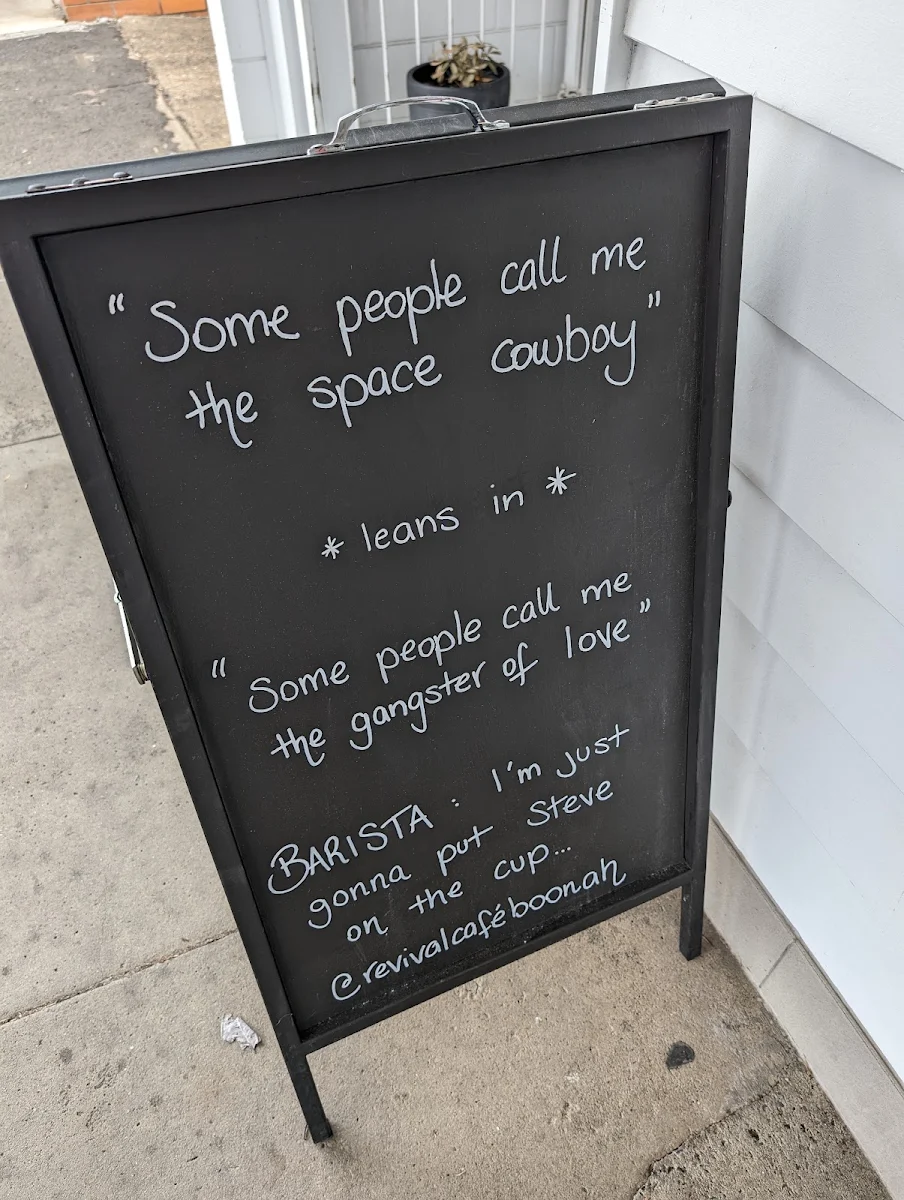 "Some people call me
the space cowboy"
*leans in*
"Some people call me
the gangster of love"
BARISTA: I'm just
gonna put Steve
on the cup...
@revivalcaféboonah